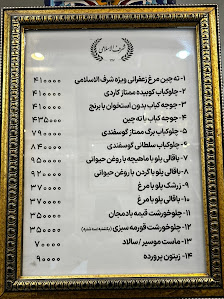 شرف الاسلامی
۱- ته چین مرغ زعفرانی ویژه شرف الاسلامی ۴۱۰۰۰۰
۲- چلوکباب کوبیده ممتاز کاردی ۴۱۰۰۰۰
۳- جوجه کباب بدون استخوان با برنج ۴۱۰۰۰۰
۴- جوجه کباب با ته چین ۴۳۵۰۰۰
۵- چلوکباب برگ ممتاز گوسفندی ۷۹۰۰۰۰
۶- چلوکباب سلطانی گوسفندی ۸۴۰۰۰۰
۷- باقالی پلو با ماهیچه با روغن حیوانی ۹۵۰۰۰۰
۸- باقالی پلو با گردن با روغن حیوانی ۹۲۰۰۰۰
۹- زرشک پلو با مرغ ۳۷۰۰۰۰
۱۰- باقالی پلو با مرغ ۳۷۰۰۰۰
۱۱- چلوخورشت قیمه بادمجان ۳۵۰۰۰۰
۱۲- چلوخورشت قورمه سبزی ۳۵۰۰۰۰
۱۳- ماست موسیر / سالاد ۷۰۰۰۰
۱۴- زیتون پرورده ۹۰۰۰۰